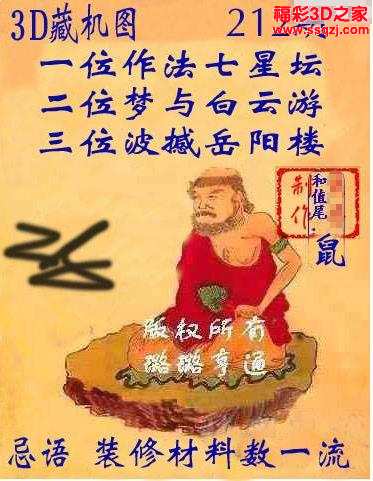 福彩3D之家
www.ssqzj.com
3D藏机图
一位作法七星坛
二位梦与白云游
三位波撼岳阳楼
制作
和值尾:
鼠
版权所有
璐璐亨通
忌语 装修材料数一流